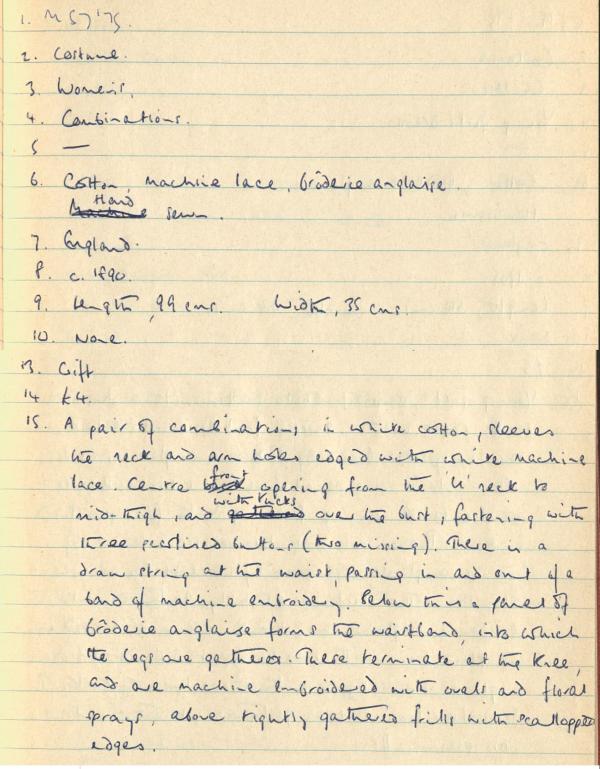 1. M 57'75.
2. Costume.
3. Women's.
4. Combinations.
5 —
6. Cotton, machine lace, brôderie anglaise.
Hand
Machine sewn.
7. England.
8. c. 1890.
9. Length, 99 cms. Width, 35 cms.
10. None.
13. Gift
14 £4.
15. A pair of combinations in white cotton, sleeves
the neck and arm holes edged with white machine
front
lace. Centre back opening from the 'U' neck to
with tucks
mid-thigh, and gathered over the bust, fastening with
three pearlised buttons (two missing). There is a
draw string at the waist, passing in and out of a
band of machine embroidery. Below this a panel of
brôderie anglaise forms the waistband, into which
the legs are gathered. These terminate at the knee,
and are machine embroidered with ovals and floral
sprays, above tightly gathered frills with scallopped
edges.